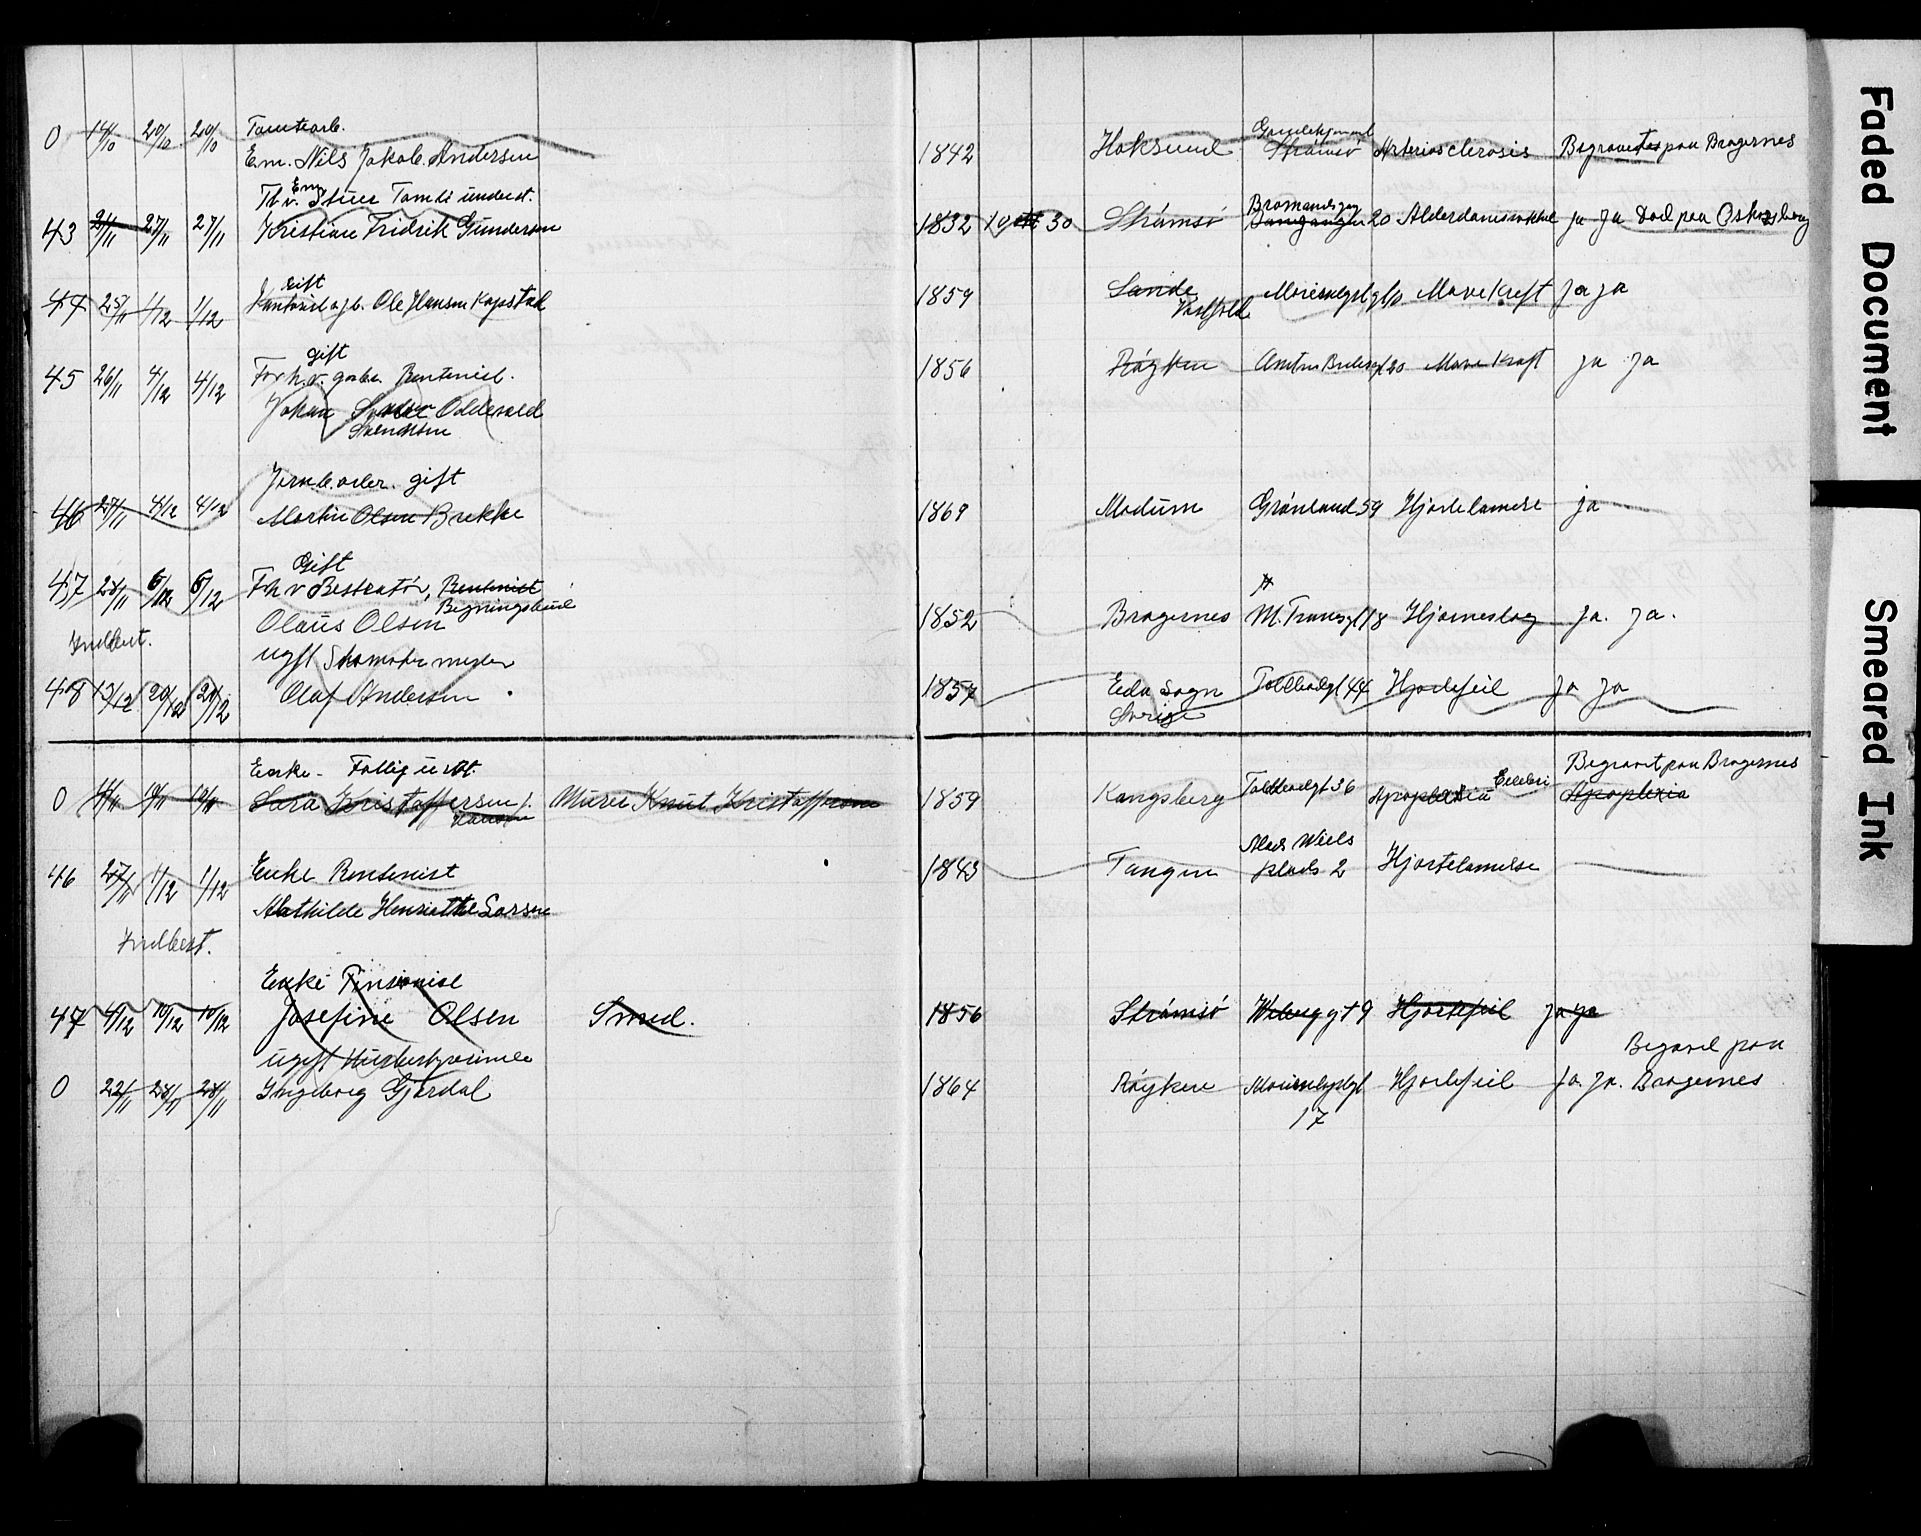 0 14/10 20/10 20/10 Tomtearb.
Em. Nils Jakob Andersen 1842 Hoksund Strømsø Arteriosclerosis Begravet paa Bragernes
Em.
Fh v. Stuer Tomte underst.
43 21/11 27/11 27/11 Kristian Fridrik Gundersen 1832 19 30 Strømsø 20 Alderdomssvakhet ja ja Død paa
Gift
44 25/11 1/12 1/12 Ole Hansen Kopstad 1859 Sande Vestfold Mavekreft ja ja
gift
45 26/11 4/12 4/12 Forh.v. Rentenist.
Johan Oddevald
Svendsen 1856 Røyken 20 Mave Kreft ja ja
Jernb.arb. gift
46 27/11 4/12 4/12 Martin Olsen Brekke 1869 Modum Grønland 59 Hjertelamelse ja
Gift
47 28/11 6/12 6/12 Fh v Bestratør, Rentenist
Bygningsbud
Olaus Olsen 1852 Bragernes M. Tranesgt 18 Hjerneslag ja. ja.
Indbert.
ugift Skomakermester
48 13/12 20/12 20/12 Olaf Andersen 1857 Eda Sogn Sverige Tollbodgt 44 Hjertefeil ja ja
Enke - Fattigunderst.
0 10/11 10/11 Sara Kristoffersen f. Hansen Murer Knut Kristoffersen 1859 Kongsberg Tollbodgt 36 Apoplexia Cerebri Begravet paa Bragernes
Apoplexia
46 27/11 1/12 1/12 Enke Rentenist 1843 Tangen Mads Wiels plads 2 Hjertelamelse
Mathilde Henriette Larsen
Indbert.
Enke Pensionist
47 4/12 10/12 10/12 Josefine Olsen Smed. 1856 Strømsø gt 9 Hjertefeil ja ja
ugift Husbestyrerinde Begravd paa
0 22/11 28/11 28/11 Ingeborg Gjerdal 1864 Røyken 17 Hjertefeil ja ja. Bragernes
Faded Document
Smeared Ink